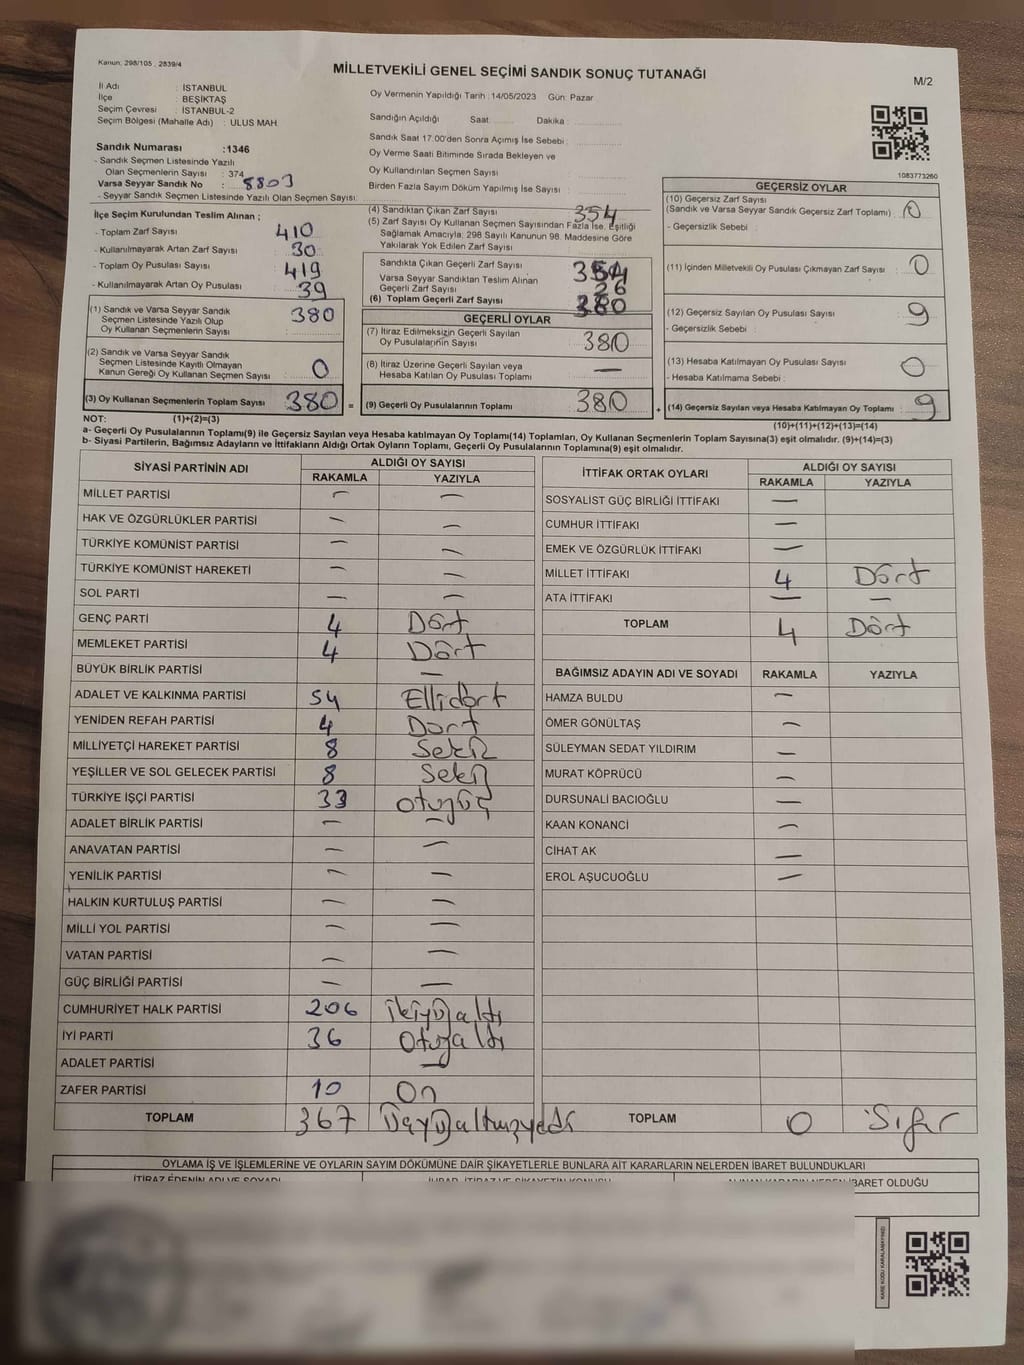 Kanun, 298/105 , 2839/4
MİLLETVEKİLİ GENEL SEÇİMİ SANDIK SONUÇ TUTANAĞI
M/2
İl Adı : İSTANBUL
İlçe : BEŞİKTAŞ
Seçim Çevresi : İSTANBUL-2
Seçim Bölgesi (Mahalle Adı) : ULUS MAH.
Sandık Numarası :1346
- Sandık Seçmen Listesinde Yazılı
Olan Seçmenlerin Sayısı : 374
Varsa Seyyar Sandık No : 8803
- Seyyar Sandık Seçmen Listesinde Yazılı Olan Seçmen Sayısı:
Oy Vermenin Yapıldığı Tarih :14/05/2023 Gün: Pazar
Sandığın Açıldığı Saat: Dakika :
Sandık Saat 17.00'den Sonra Açımış İse Sebebi :
Oy Verme Saati Bitiminde Sırada Bekleyen ve
Oy Kullandırılan Seçmen Sayısı :
Birden Fazla Sayım Döküm Yapılmış İse Sayısı :
1083773260
İlçe Seçim Kurulundan Teslim Alınan ;
- Toplam Zarf Sayısı 410
- Kullanılmayarak Artan Zarf Sayısı 30
- Toplam Oy Pusulası Sayısı 419
- Kullanılmayarak Artan Oy Pusulası 39
(1) Sandık ve Varsa Seyyar Sandık
Seçmen Listesinde Yazılı Olup
Oy Kullanan Seçmenlerin Sayısı : 380
(2) Sandık ve Varsa Seyyar Sandık
Seçmen Listesinde Kayıtlı Olmayan
Kanun Gereği Oy Kullanan Seçmen Sayısı 0
(3) Oy Kullanan Seçmenlerin Toplam Sayısı 380 =
(4) Sandıktan Çıkan Zarf Sayısı 354
(5) Zarf Sayısı Oy Kullanan Seçmen Sayısından Fazla İse, Eşitliği
Sağlamak Amacıyla, 298 Sayılı Kanunun 98. Maddesine Göre
Yakılarak Yok Edilen Zarf Sayısı
Sandıkta Çıkan Geçerli Zarf Sayısı 354
Varsa Seyyar Sandıktan Teslim Alınan
Geçerli Zarf Sayısı 26
(6) Toplam Geçerli Zarf Sayısı 380
GEÇERLİ OYLAR
(7) İtiraz Edilmeksizin Geçerli Sayılan
Oy Pusulalarının Sayısı 380
(8) İtiraz Üzerine Geçerli Sayılan veya
Hesaba Katılan Oy Pusulası Toplamı —
(9) Geçerli Oy Pusulalarının Toplamı 380 +
GEÇERSİZ OYLAR
(10) Geçersiz Zarf Sayısı
(Sandık ve Varsa Seyyar Sandık Geçersiz Zarf Toplamı) : 0
- Geçersizlik Sebebi :
(11) İçinden Milletvekili Oy Pusulası Çıkmayan Zarf Sayısı : 0
(12) Geçersiz Sayılan Oy Pusulası Sayısı : 9
- Geçersizlik Sebebi :
(13) Hesaba Katılmayan Oy Pusulası Sayısı : 0
- Hesaba Katılmama Sebebi :
(14) Geçersiz Sayılan veya Hesaba Katılmayan Oy Toplamı : 9
NOT: (1)+(2)=(3) (10)+(11)+(12)+(13)=(14)
a- Geçerli Oy Pusulalarının Toplamı(9) ile Geçersiz Sayılan veya Hesaba katılmayan Oy Toplamı(14) Toplamları, Oy Kullanan Seçmenlerin Toplam Sayısına(3) eşit olmalıdır. (9)+(14)=(3)
b- Siyasi Partilerin, Bağımsız Adayların ve İttifakların Aldığı Ortak Oyların Toplamı, Geçerli Oy Pusulalarının Toplamına(9) eşit olmalıdır.
SİYASİ PARTİNİN ADI ALDIĞI OY SAYISI
RAKAMLA YAZIYLA
MİLLET PARTİSİ — —
HAK VE ÖZGÜRLÜKLER PARTİSİ — —
TÜRKİYE KOMÜNİST PARTİSİ — —
TÜRKİYE KOMÜNİST HAREKETİ — —
SOL PARTİ — —
GENÇ PARTİ 4 Dört
MEMLEKET PARTİSİ 4 Dört
BÜYÜK BİRLİK PARTİSİ —
ADALET VE KALKINMA PARTİSİ 54 Ellidört
YENİDEN REFAH PARTİSİ 4 Dört
MİLLİYETÇİ HAREKET PARTİSİ 8 Sekiz
YEŞİLLER VE SOL GELECEK PARTİSİ 8 Sekiz
TÜRKİYE İŞÇİ PARTİSİ 33 otuzüç
ADALET BİRLİK PARTİSİ — —
ANAVATAN PARTİSİ — —
YENİLİK PARTİSİ — —
HALKIN KURTULUŞ PARTİSİ — —
MİLLİ YOL PARTİSİ — —
VATAN PARTİSİ — —
GÜÇ BİRLİĞİ PARTİSİ — —
CUMHURİYET HALK PARTİSİ 206 ikiyüzaltı
İYİ PARTİ 36 Otuzaltı
ADALET PARTİSİ —
ZAFER PARTİSİ 10 On
TOPLAM 367 Üçyüzaltmışyedi
İTTİFAK ORTAK OYLARI ALDIĞI OY SAYISI
RAKAMLA YAZIYLA
SOSYALIST GÜÇ BİRLİĞİ İTTİFAKI —
CUMHUR İTTİFAKI —
EMEK VE ÖZGÜRLÜK İTTİFAKI —
MİLLET İTTİFAKI 4 Dört
ATA İTTİFAKI — —
TOPLAM 4 Dört
BAĞIMSIZ ADAYIN ADI VE SOYADI RAKAMLA YAZIYLA
HAMZA BULDU —
ÖMER GÖNÜLTAŞ —
SÜLEYMAN SEDAT YILDIRIM —
MURAT KÖPRÜCÜ —
DURSUNALİ BACIOĞLU —
KAAN KONANCİ —
CİHAT AK —
EROL AŞUCUOĞLU —
TOPLAM 0 Sıfır
OYLAMA İŞ VE İŞLEMLERİNE VE OYLARIN SAYIM DÖKÜMÜNE DAİR ŞİKAYETLERLE BUNLARA AİT KARARLARIN NELERDEN İBARET BULUNDUKLARI
İTİRAZ EDENİN ADI VE SOYADI İBARET OLDUĞU
KARE KODU KARALAMAYINIZ!